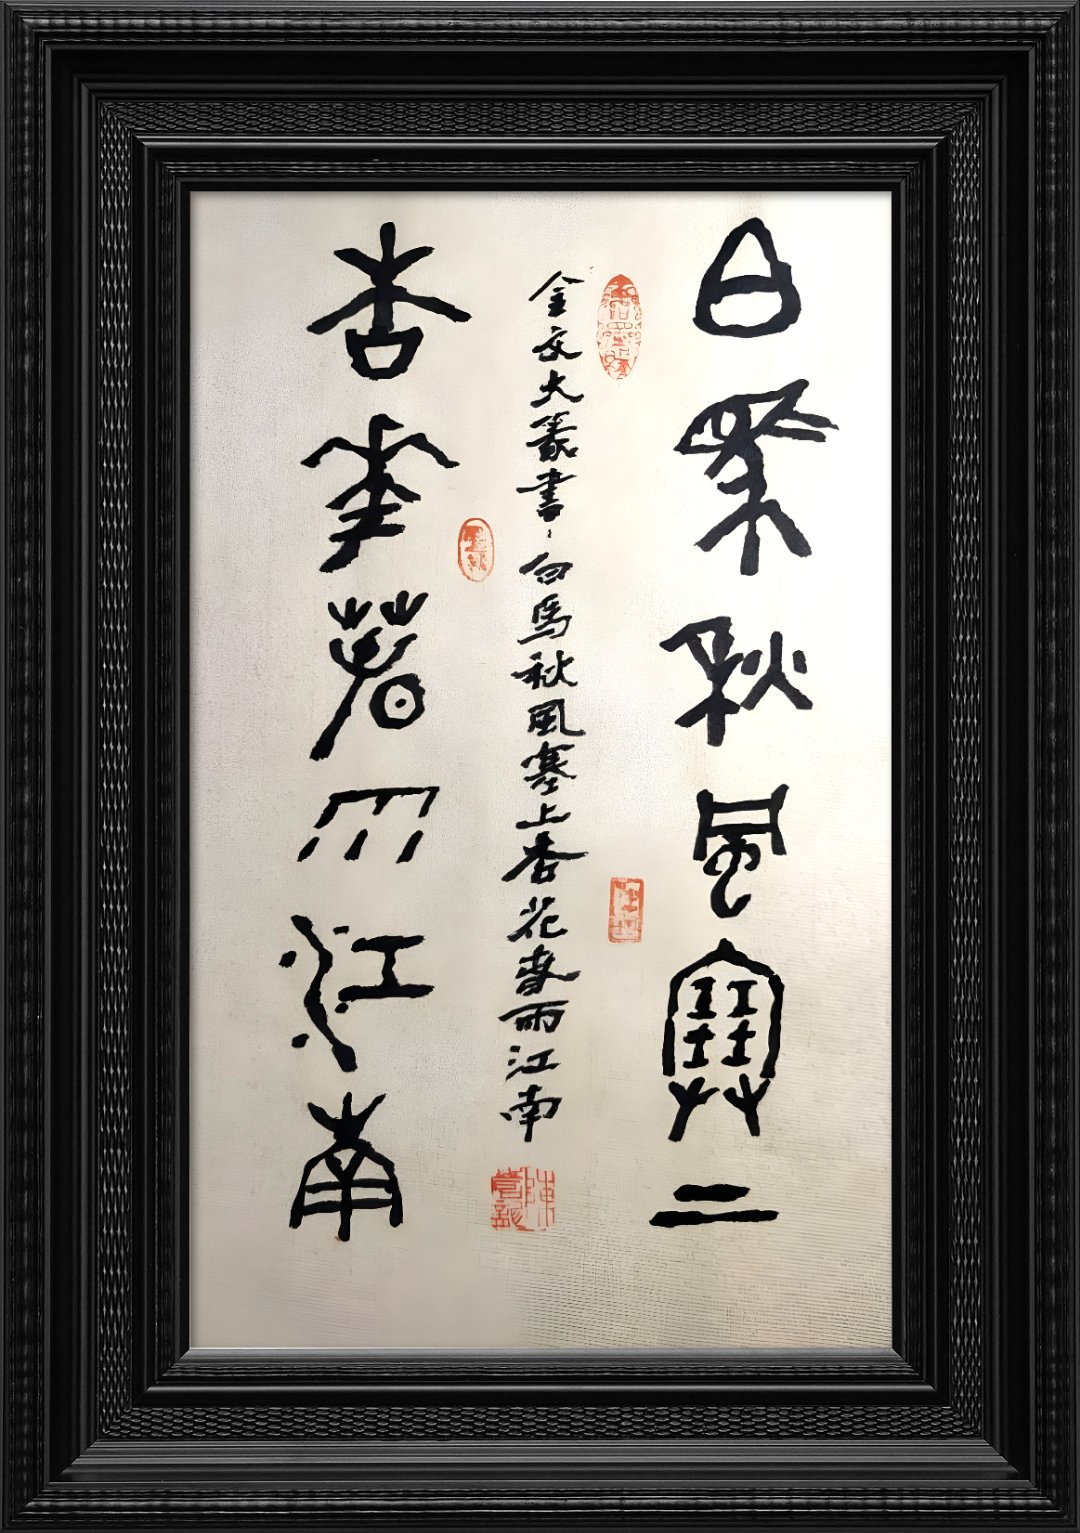 白馬秋風塞上
金文大篆書、白馬秋風塞上杏花春雨江南
杏花春雨江南